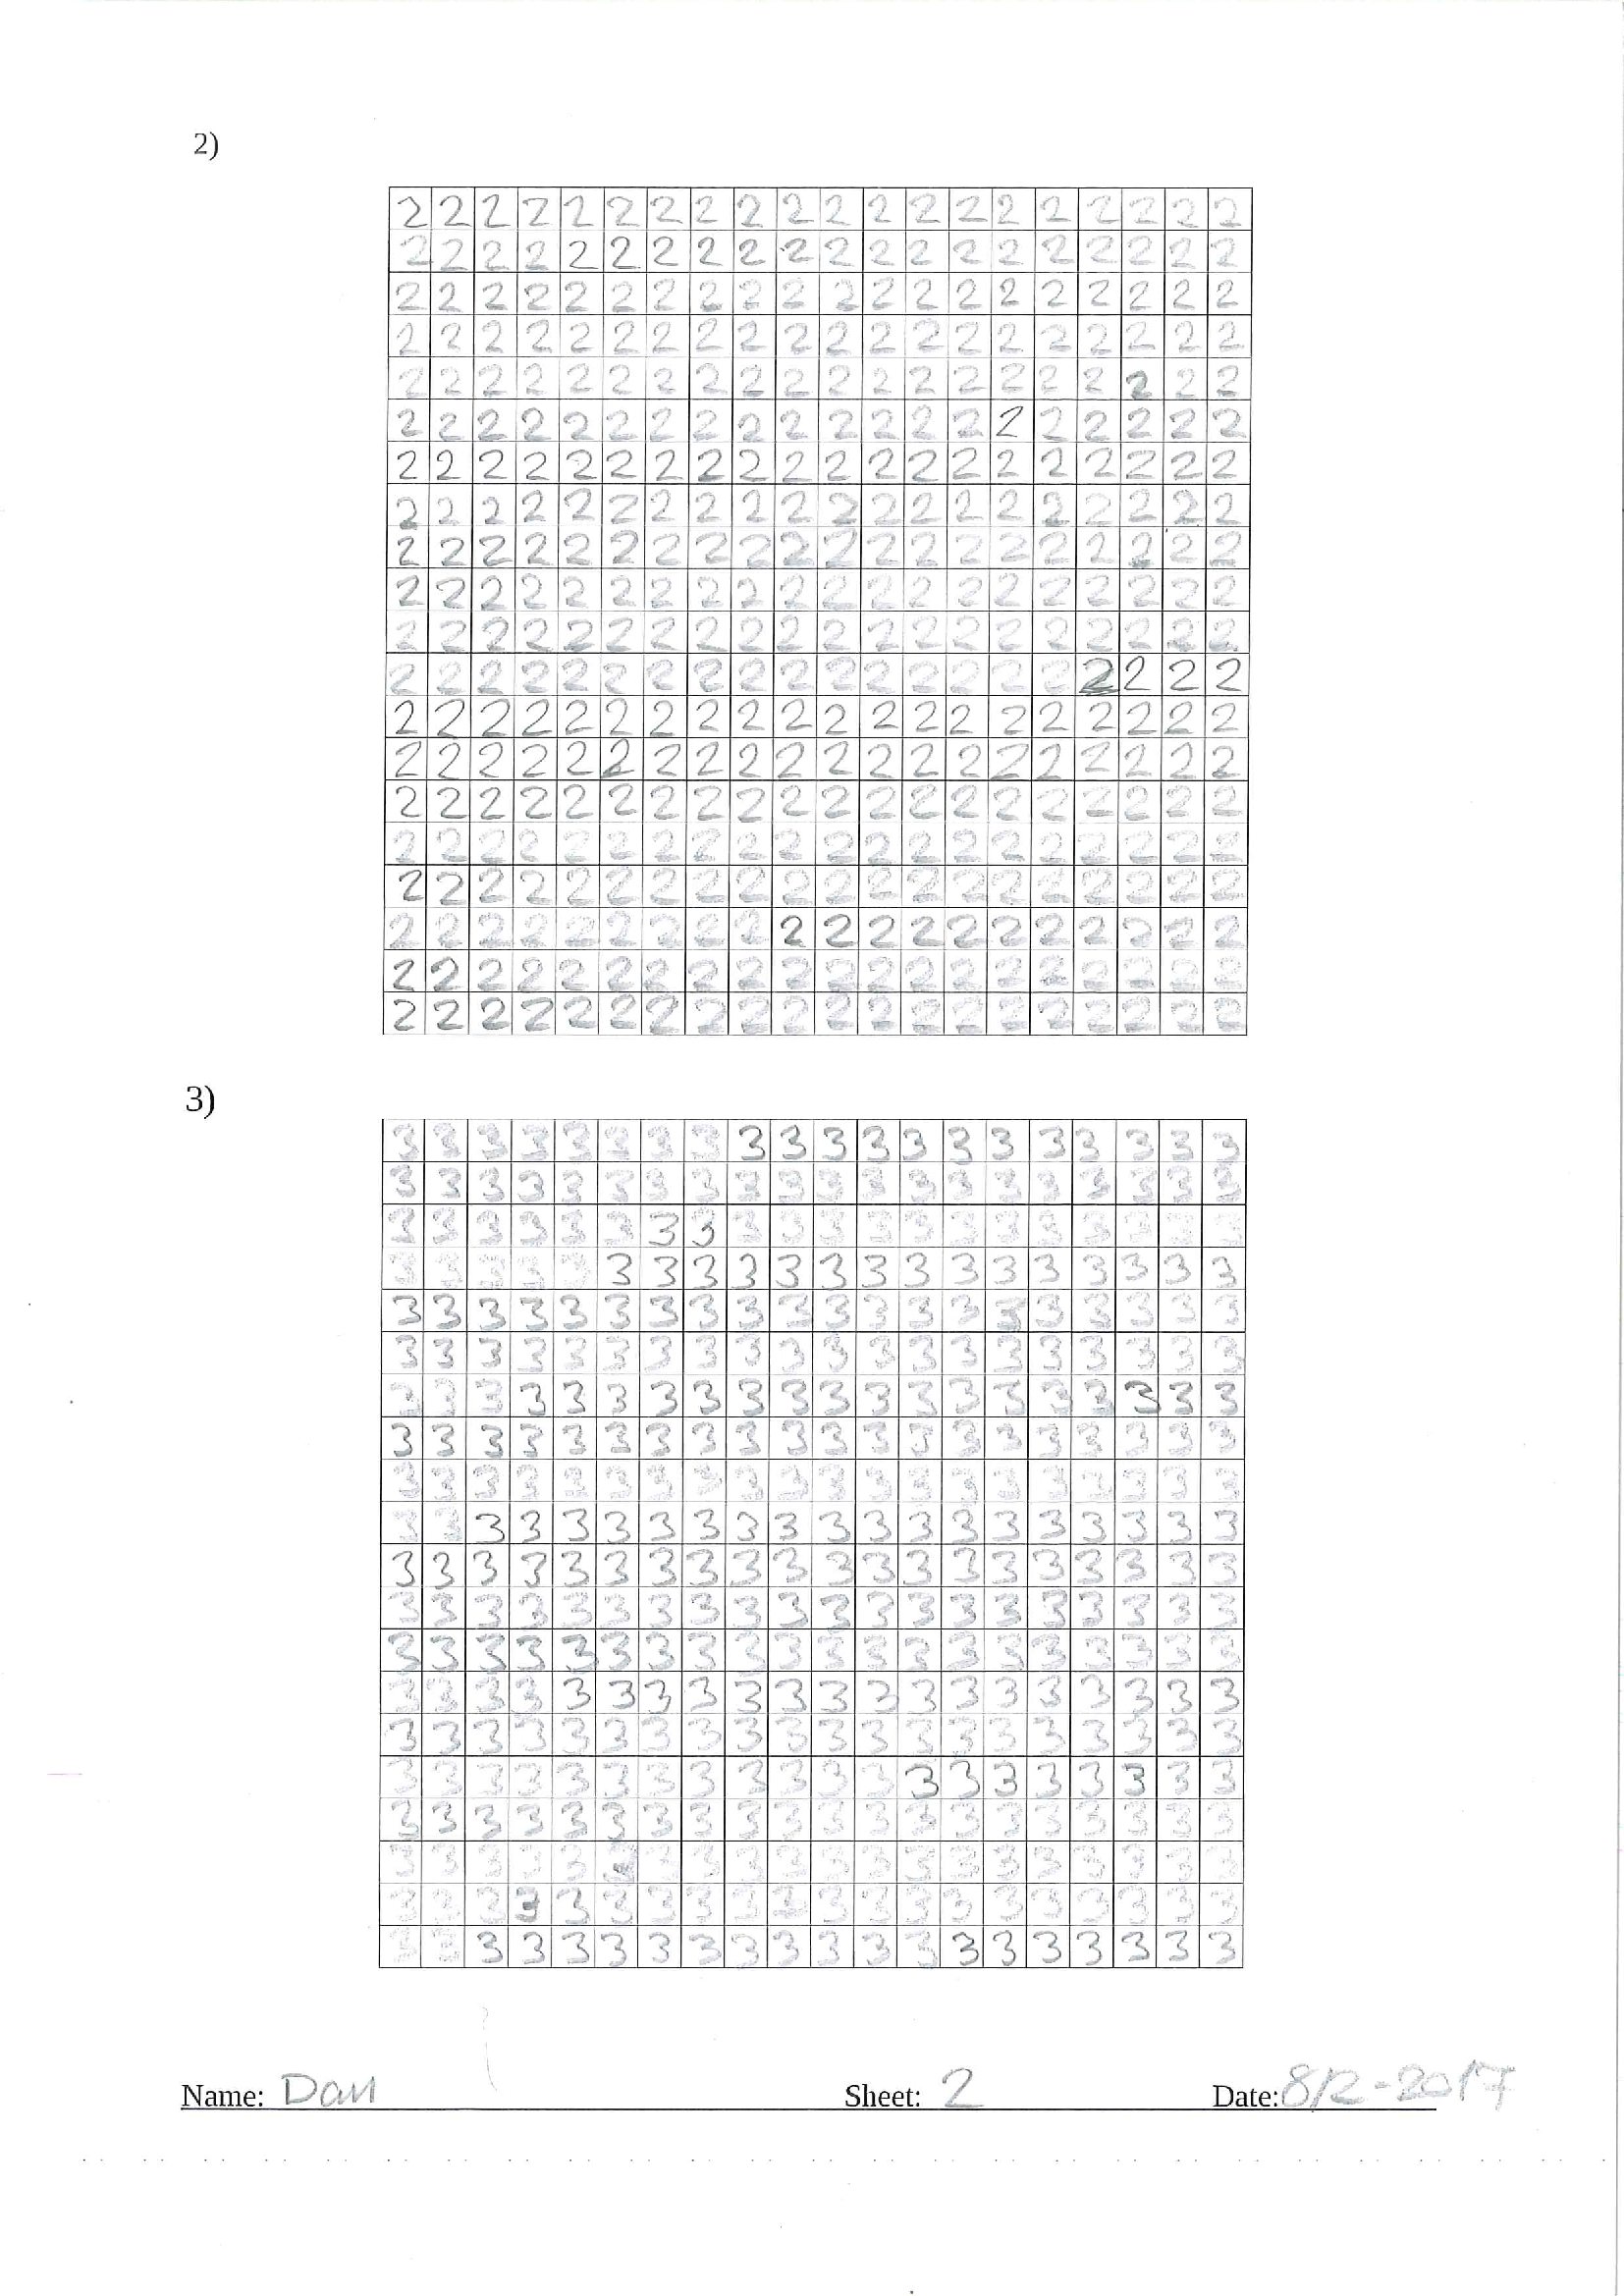 2)
2 2 2 2 2 2 2 2 2 2 2 2 2 2 2 2 2 2 2 2
2 2 2 2 2 2 2 2 2 2 2 2 2 2 2 2 2 2 2 2
2 2 2 2 2 2 2 2 2 2 2 2 2 2 2 2 2 2 2 2
2 2 2 2 2 2 2 2 2 2 2 2 2 2 2 2 2 2 2 2
2 2 2 2 2 2 2 2 2 2 2 2 2 2 2 2 2 2 2 2
2 2 2 2 2 2 2 2 2 2 2 2 2 2 2 2 2 2 2 2
2 2 2 2 2 2 2 2 2 2 2 2 2 2 2 2 2 2 2 2
2 2 2 2 2 2 2 2 2 2 2 2 2 2 2 2 2 2 2 2
2 2 2 2 2 2 2 2 2 2 2 2 2 2 2 2 2 2 2 2
2 2 2 2 2 2 2 2 2 2 2 2 2 2 2 2 2 2 2 2
2 2 2 2 2 2 2 2 2 2 2 2 2 2 2 2 2 2 2 2
2 2 2 2 2 2 2 2 2 2 2 2 2 2 2 2 2 2 2 2
2 2 2 2 2 2 2 2 2 2 2 2 2 2 2 2 2 2 2 2
2 2 2 2 2 2 2 2 2 2 2 2 2 2 2 2 2 2 2 2
2 2 2 2 2 2 2 2 2 2 2 2 2 2 2 2 2 2 2 2
2 2 2 2 2 2 2 2 2 2 2 2 2 2 2 2 2 2 2 2
2 2 2 2 2 2 2 2 2 2 2 2 2 2 2 2 2 2 2 2
2 2 2 2 2 2 2 2 2 2 2 2 2 2 2 2 2 2 2 2
2 2 2 2 2 2 2 2 2 2 2 2 2 2 2 2 2 2 2 2
2 2 2 2 2 2 2 2 2 2 2 2 2 2 2 2 2 2 2 2
3)
3 3 3 3 3 3 3 3 3 3 3 3 3 3 3 3 3 3 3 3
3 3 3 3 3 3 3 3 3 3 3 3 3 3 3 3 3 3 3 3
3 3 3 3 3 3 3 3 3 3 3 3 3 3 3 3 3 3 3 3
3 3 3 3 3 3 3 3 3 3 3 3 3 3 3 3 3 3 3 3
3 3 3 3 3 3 3 3 3 3 3 3 3 3 3 3 3 3 3 3
3 3 3 3 3 3 3 3 3 3 3 3 3 3 3 3 3 3 3 3
3 3 3 3 3 3 3 3 3 3 3 3 3 3 3 3 3 3 3 3
3 3 3 3 3 3 3 3 3 3 3 3 3 3 3 3 3 3 3 3
3 3 3 3 3 3 3 3 3 3 3 3 3 3 3 3 3 3 3 3
3 3 3 3 3 3 3 3 3 3 3 3 3 3 3 3 3 3 3 3
3 3 3 3 3 3 3 3 3 3 3 3 3 3 3 3 3 3 3 3
3 3 3 3 3 3 3 3 3 3 3 3 3 3 3 3 3 3 3 3
3 3 3 3 3 3 3 3 3 3 3 3 3 3 3 3 3 3 3 3
3 3 3 3 3 3 3 3 3 3 3 3 3 3 3 3 3 3 3 3
3 3 3 3 3 3 3 3 3 3 3 3 3 3 3 3 3 3 3 3
3 3 3 3 3 3 3 3 3 3 3 3 3 3 3 3 3 3 3 3
3 3 3 3 3 3 3 3 3 3 3 3 3 3 3 3 3 3 3 3
3 3 3 3 3 3 3 3 3 3 3 3 3 3 3 3 3 3 3 3
3 3 3 3 3 3 3 3 3 3 3 3 3 3 3 3 3 3 3 3
3 3 3 3 3 3 3 3 3 3 3 3 3 3 3 3 3 3 3 3
Name: Dan Sheet: 2 Date: 8/2-2017